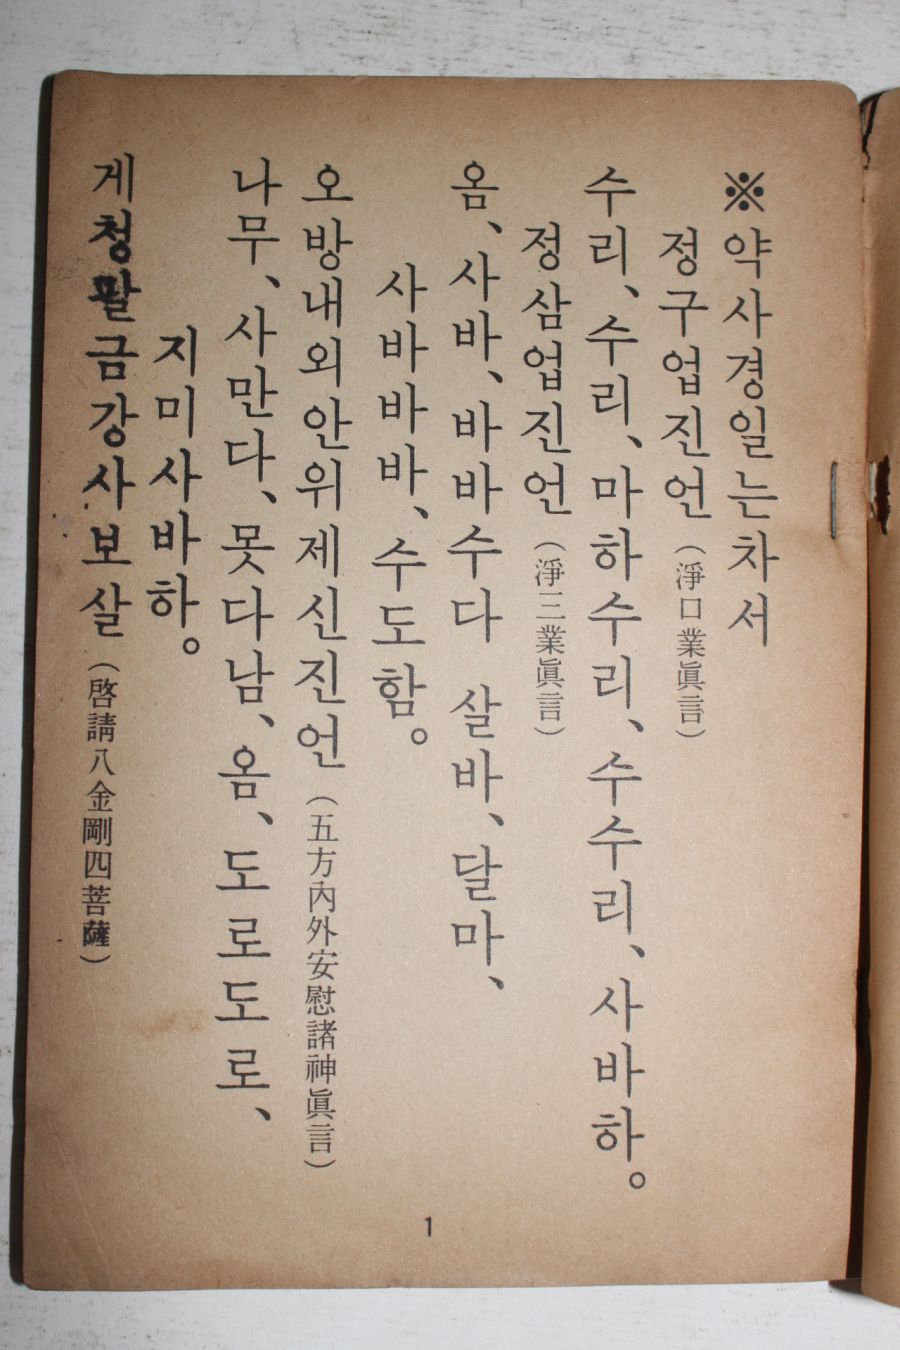 ※약사경일는차서
정구업진언(淨口業眞言)
수리、수리、마하수리、수수리、사바하。
정삼업진언(淨三業眞言)
옴、사바、바바수다 살바、달마、
사바바바、수도함。
오방내외안위제신진언(五方內外安慰諸神眞言)
나무、사만다、못다남、옴、도로도로、
지미사바하。
게청팔금강사보살(啓請八金剛四菩薩)
1